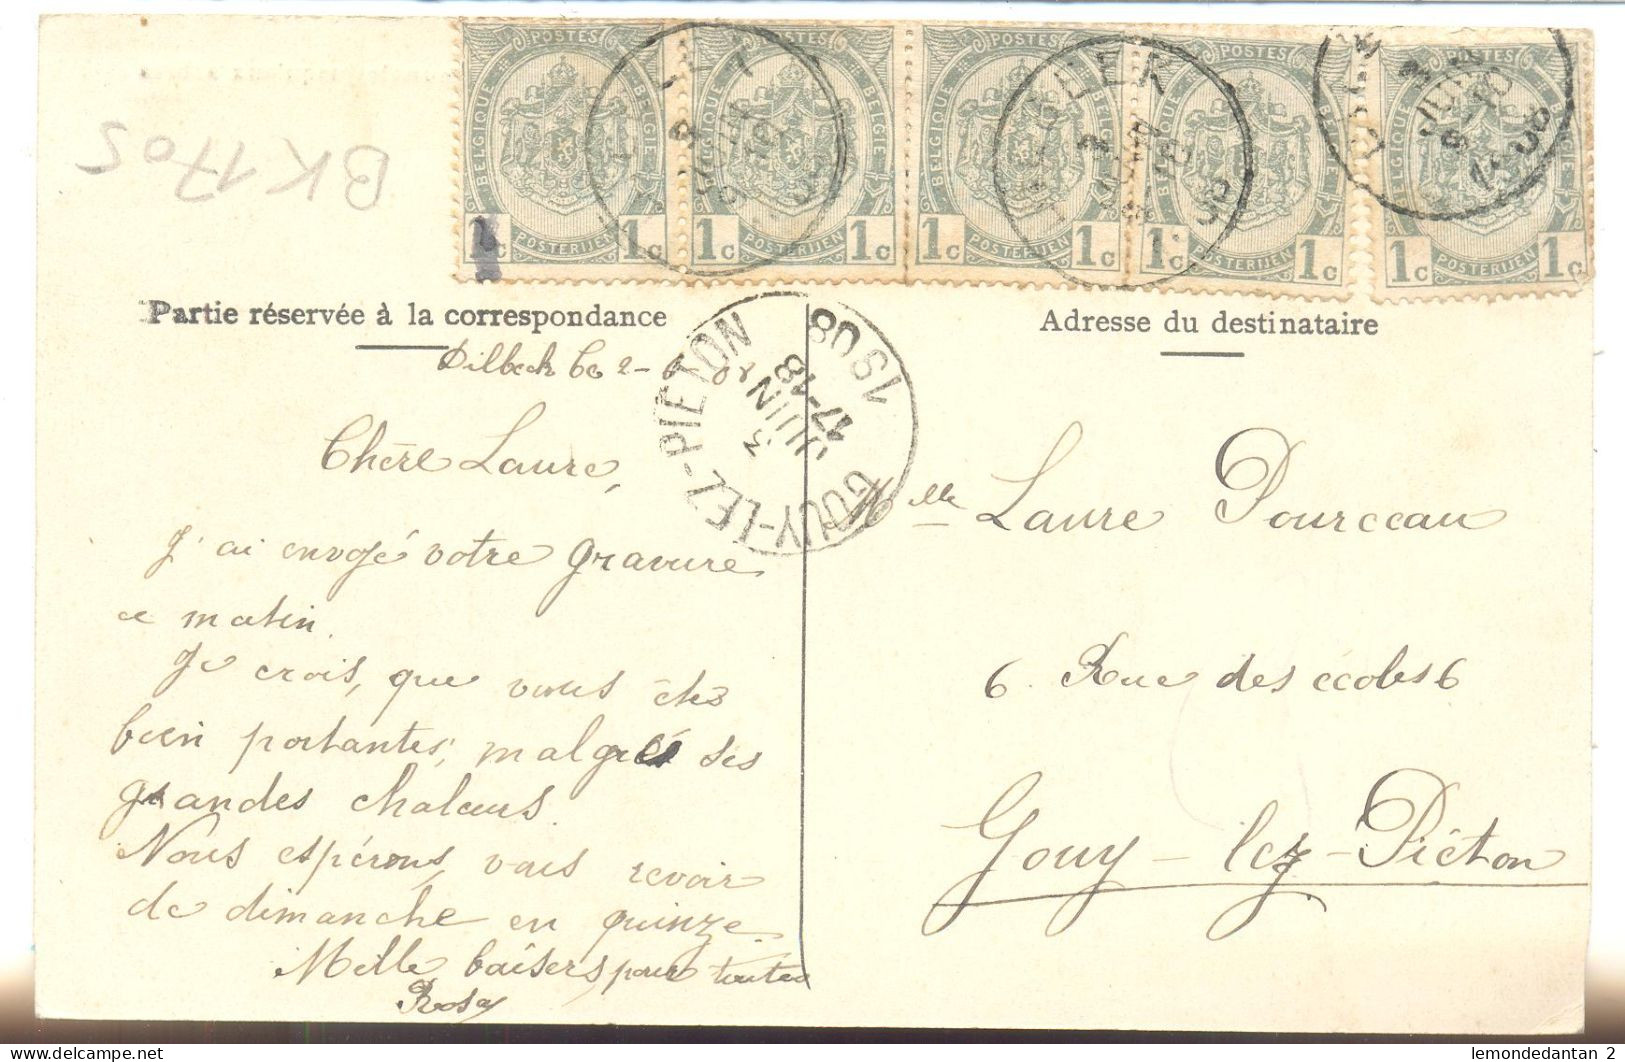 POSTES POSTES POSTES POSTES POSTES
BELGIQUE BELGIE BELGIQUE BELGIE BELGIQUE BELGIE BELGIQUE BELGIE BELGIQUE
1c 1c 1c 1c 1c 1c 1c 1c 1c 1c
POSTERIJEN POSTERIJEN POSTERIJEN POSTERIJEN POSTERIJEN
BK 1705
Partie réservée à la correspondance
Adresse du destinataire
GOUY-LEZ-PIETON
3 JUIN
17-18
1908
Dilbeek le 2-6 08
Chère Laure,
J'ai envoyé votre gravure
ce matin.
Je crois, que vous êtes
bien portantes, malgré ses
grandes chaleurs.
Nous espérons, vous revoir
de dimanche en quinze.
Mille baisers pour toutes
Rosa
Melle Laure Pourceau
6. Rue des écoles 6
Gouy-lez-Piéton
lemondedantan 2
delcampe.net